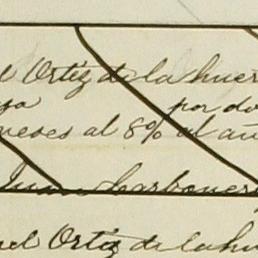 el Ortiz de la huer
por do
meses al 8% al añ
Juan Carboner
uel Ortiz de la hu